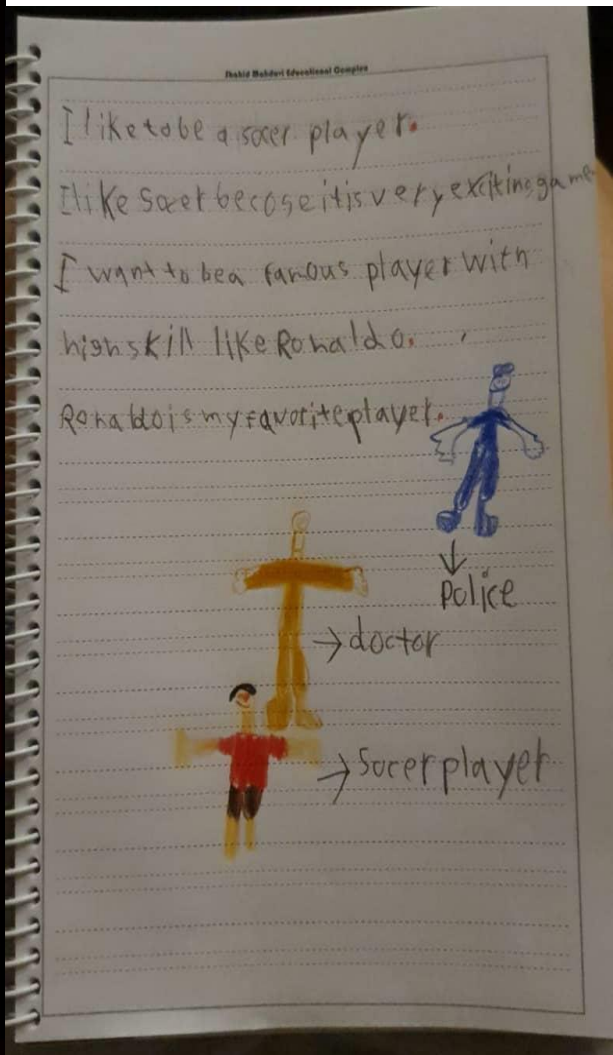 Shahid Mahdavi Educational Complex
I like to be a socer player.
I like socer becose it is very exiting game.
I want to be a famous player with
high skill like Ronaldo.
Ronaldo is my favorite player.
Police
doctor
Socer player